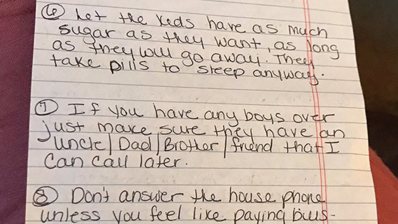 ⑥ Let the kids have as much
sugar as they want, as long
as they will go away. They
take pills to sleep anyway.
⑦ If you have any boys over
just make sure they have an
Uncle/Dad/Brother/friend that I
can call later.
⑧ Don't answer the house phone
unless you feel like paying bills.